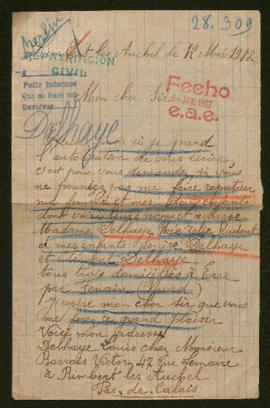 28.309
Berlin
REPATRIACION
CIVIL
Pedir informes
Que se hace en
Devolver
les Auchel le 12 Mai 1917
Fecho
6-JUN. 1917
e.a.e.
Mon cher Sir
Delhaye
si je prend
l'autorisation de vous écrire,
c'est pour vous demander si vous
ne pourriez pas me faire rapatrier
ma femme et mes enfants
dont voici leurs nom et adresse
Madame Delhaye Née Zélie Rudent
et mes enfants Denise Delhaye
et Delhaye
tous trois domiciliés à Erre
par Fenain (Nord)
J'espère mon cher Sir que vous
me ferez ce grand plaisir
Voici mon adresse
Delhaye Louis chez Monsieur
Barrois Victor 47 rue Lemaire
à Rimbert les Auchel
Pas-de-Calais